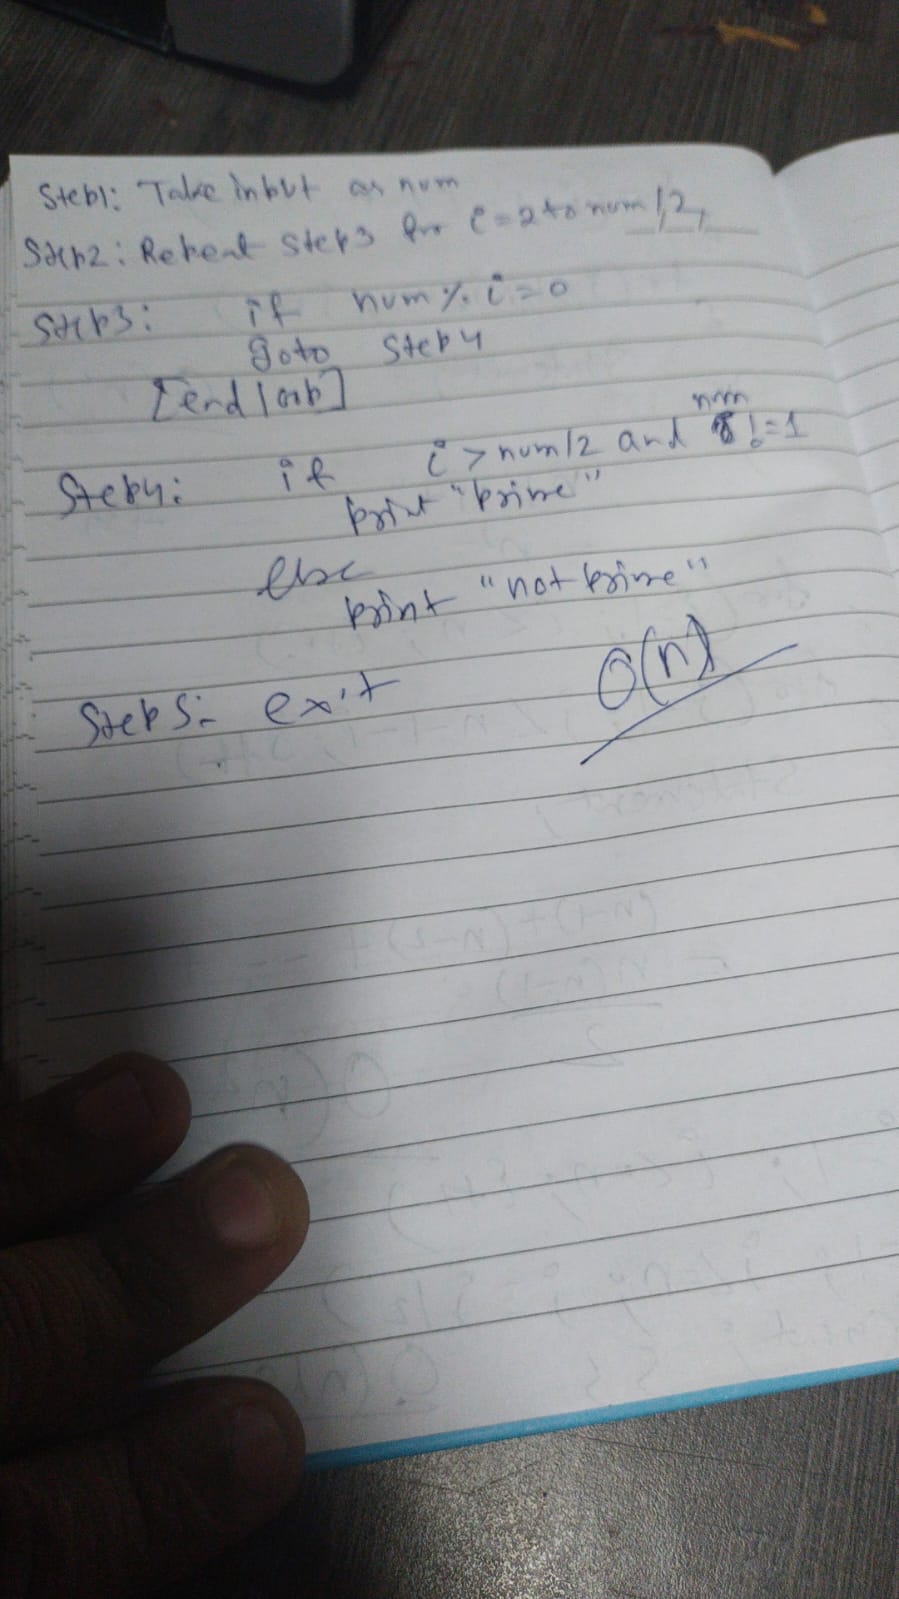 Step1: Take input as num
Step2: Repeat Step3 for i=2 to num/2,
Step3: if num % i=0
goto Step4
[end loop]
Step4: if i > num/2 and num != 1
print "prime"
else
print "not prime"
O(n)
Step5: exit